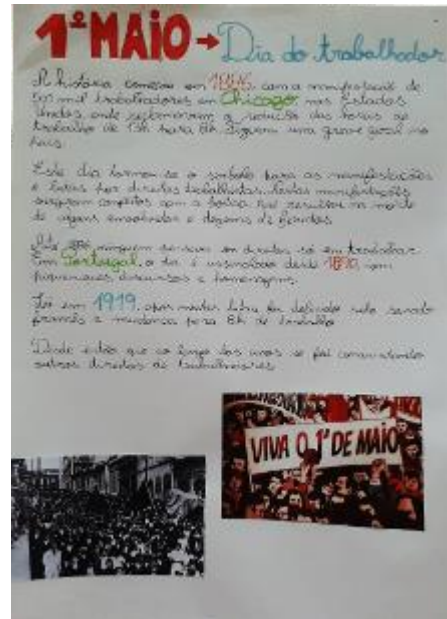 1º MAIO → Dia do trabalhador
A história começou em 1886, com a manifestação de
500 mil trabalhadores em Chicago, nos Estados
Unidos, onde reclamavam a redução das horas de
trabalho de 13h para 8h. Fizeram uma greve geral no
país.
Este dia tornou-se o símbolo para as manifestações
e lutas por direitos trabalhistas. Nestas manifestações
surgiram conflitos com a polícia que resultou na morte
de alguns envolvidos e dezenas de feridos.
Até ninguém pensava em direitos só em trabalhar.
Em Portugal, o dia é assinalado desde 1890, com
piqueniques, discursos e homenagens.
Foi em 1919, após muitas lutas foi pelo senado
francês a mudança para 8h de trabalho.
Desde então que ao longo dos anos se foi conquistando
outros direitos de trabalhadores.
VIVA O 1º DE MAIO